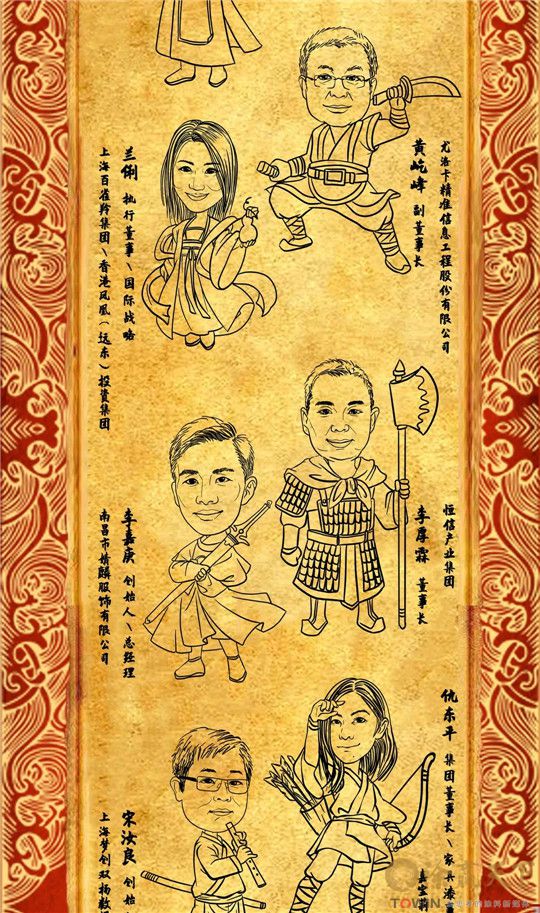 尤洛卡精准信息工程股份有限公司
黄屹峰 副董事长
兰俐 执行董事\国际战略
上海百雀羚集团\香港凤凰(远东)投资集团
恒信产业集团
李厚霖 董事长
李嘉庚 创始人\总经理
南昌市婧麟服饰有限公司
仇东平 集团董事长\家具漆
嘉宝莉
宋汝良 创始
上海梦创双杨数
TOWIN